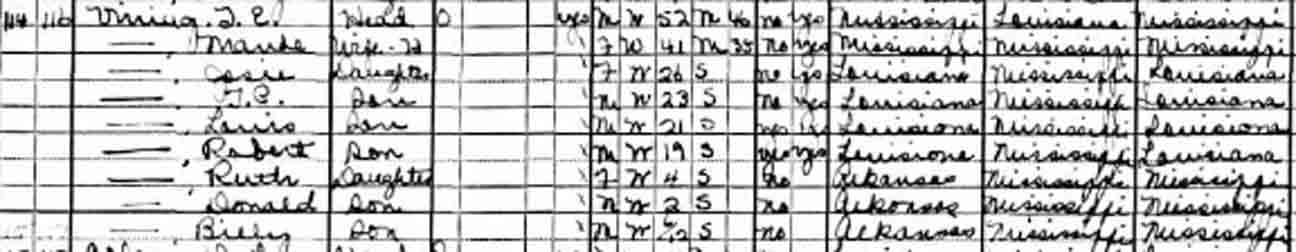 114 116 Vining. T. E. Head O yes M W 52 M 46 no yes Mississippi Louisiana Mississippi
— Maude Wife-H F W 41 M 35 no yes Mississippi Mississippi Mississippi
— Daughter F W 26 S no yes Louisiana Mississippi Louisiana
— T.E. Son M W 23 S no yes Louisiana Mississippi Louisiana
— Louis Son M W 21 S yes yes Louisiana Mississippi Louisiana
— Robert Son M W 19 S yes yes Louisiana Mississippi Louisiana
— Ruth Daughter F W 4 S no Arkansas Mississippi Mississippi
— Donald Son M W 2 S no Arkansas Mississippi Mississippi
— Billy Son M W S no Arkansas Mississippi Mississippi